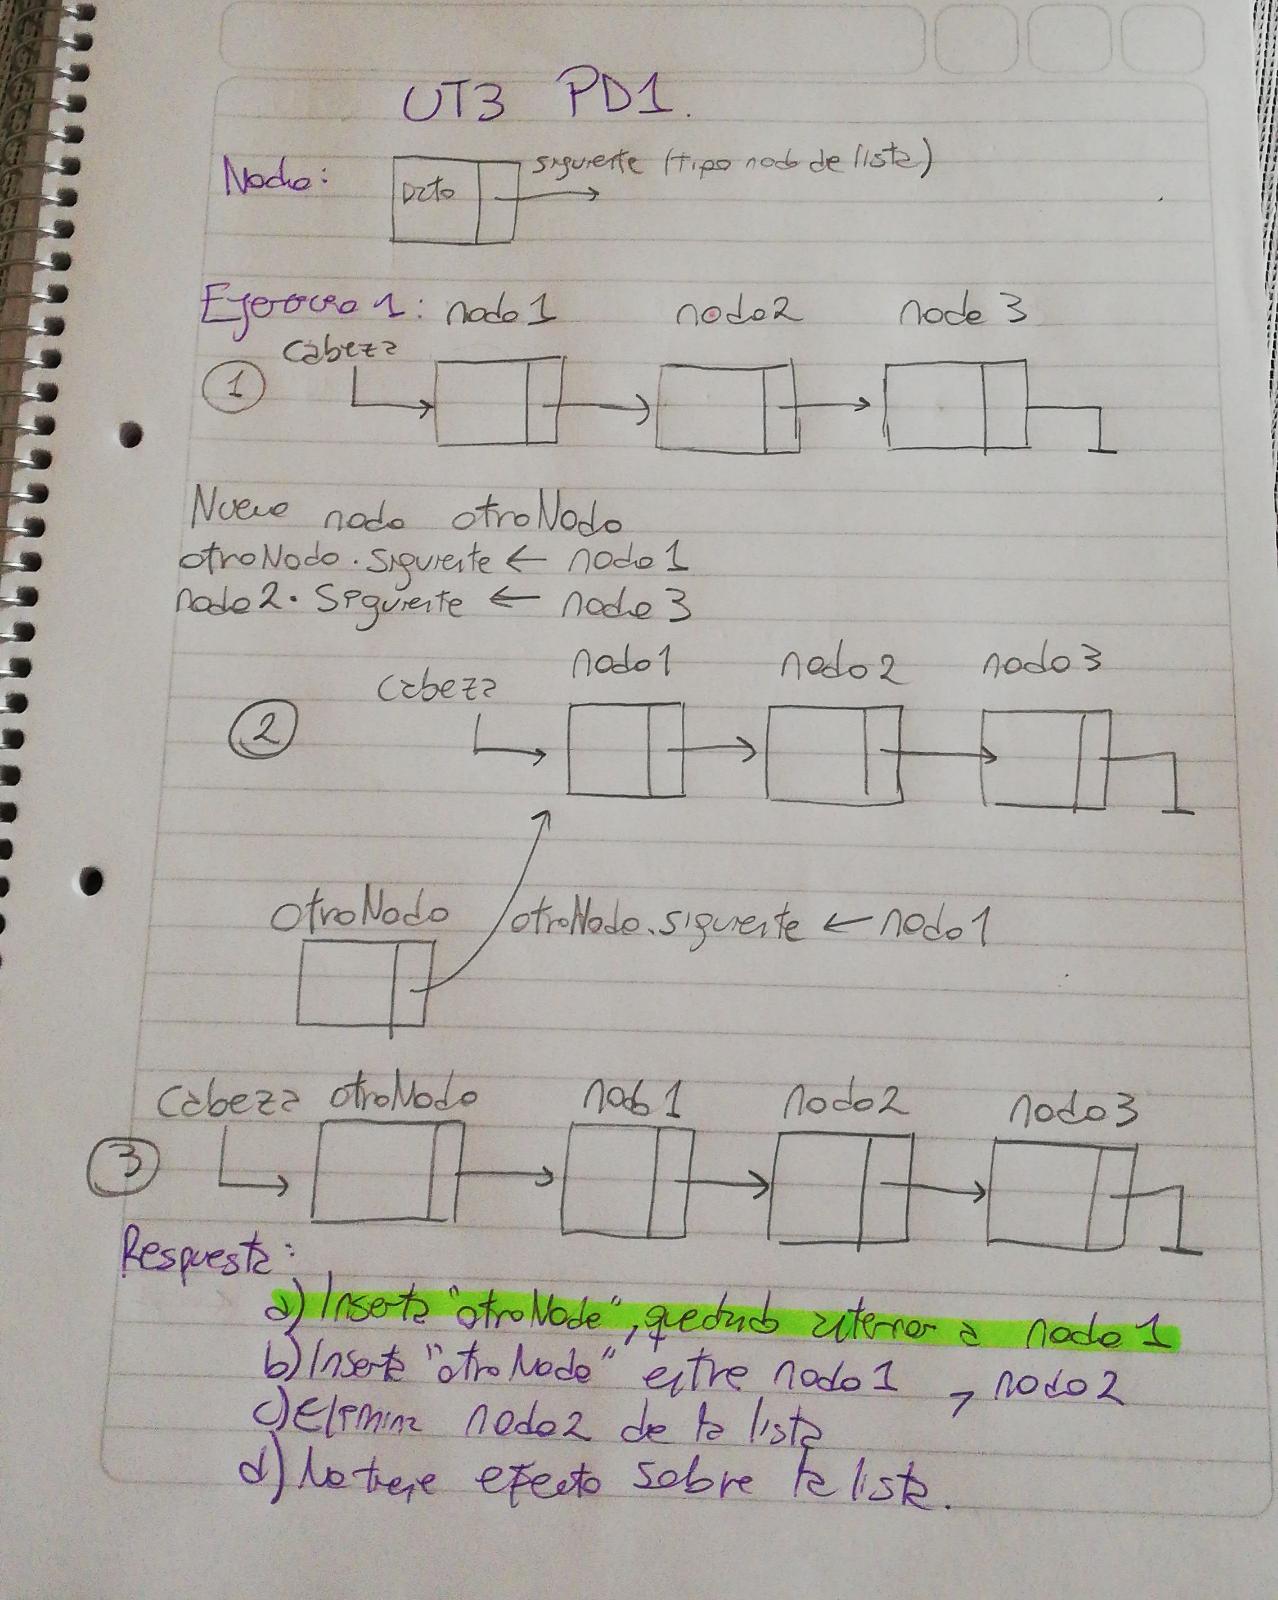 UT3 PD1.
Nodo: Dato siguiente (tipo nodo de lista)
Ejercicio 1: nodo1 nodo2 nodo 3
cabeza
1
Nuevo nodo otroNodo
otroNodo.siguiente ← nodo1
nodo2.siguiente ← nodo3
nodo1 nodo2 nodo3
cabeza
2
otroNodo otroNodo.siguiente ← nodo1
cabeza otroNodo nodo1 nodo2 nodo3
3
Respuesta:
a) Inserta "otroNodo", quedando anterior a nodo1
b) Inserta "otroNodo" entre nodo1 y nodo2
c) Elimina nodo2 de la lista
d) No tiene efecto sobre la lista.